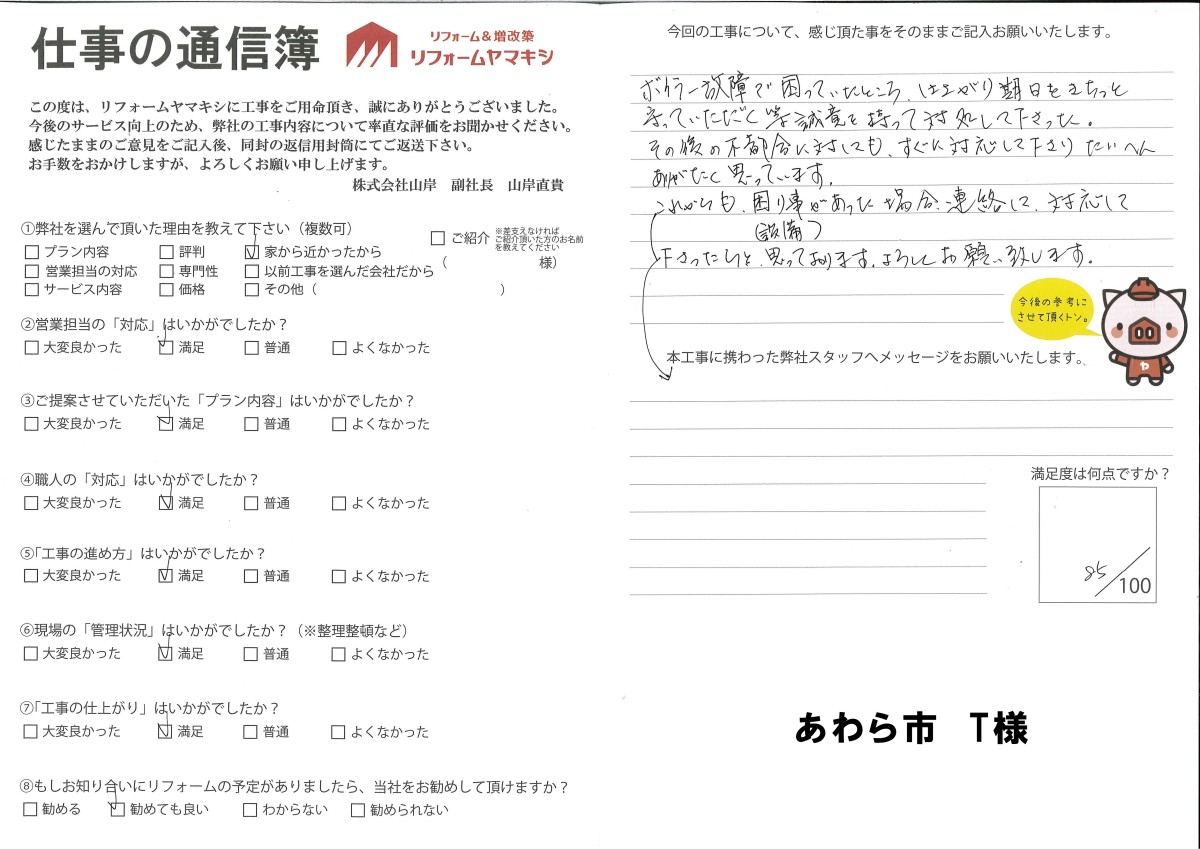 仕事の通信簿
リフォーム&増改築
リフォームヤマキシ
この度は、リフォームヤマキシに工事をご用命頂き、誠にありがとうございました。
今後のサービス向上のため、弊社の工事内容について率直な評価をお聞かせください。
感じたままのご意見をご記入後、同封の返信用封筒にてご返送下さい。
お手数をおかけしますが、よろしくお願い申し上げます。
株式会社山岸　副社長　山岸直貴
①弊社を選んで頂いた理由を教えて下さい（複数可）
□ プラン内容　□ 評判　☑ 家から近かったから
□ 営業担当の対応　□ 専門性　□ 以前工事を選んだ会社だから
□ サービス内容　□ 価格　□ その他（　　　）
□ ご紹介
※差支えなければ
ご紹介頂いた方のお名前
を教えてください
（　　　様）
②営業担当の「対応」はいかがでしたか？
□ 大変良かった　☑ 満足　□ 普通　□ よくなかった
③ご提案させていただいた「プラン内容」はいかがでしたか？
□ 大変良かった　☑ 満足　□ 普通　□ よくなかった
④職人の「対応」はいかがでしたか？
□ 大変良かった　☑ 満足　□ 普通　□ よくなかった
⑤「工事の進め方」はいかがでしたか？
□ 大変良かった　☑ 満足　□ 普通　□ よくなかった
⑥現場の「管理状況」はいかがでしたか？（※整理整頓など）
□ 大変良かった　☑ 満足　□ 普通　□ よくなかった
⑦「工事の仕上がり」はいかがでしたか？
□ 大変良かった　☑ 満足　□ 普通　□ よくなかった
⑧もしお知り合いにリフォームの予定がありましたら、当社をお勧めして頂けますか？
□ 勧める　☑ 勧めても良い　□ わからない　□ 勧められない
今回の工事について、感じ頂た事をそのままご記入お願いいたします。
ボイラー故障で困っていたところ、仕上がり期日をきちっと
守っていただく等誠意を持って対処して下さった。
その後の不都合に対しても、すぐに対応して下さりたいへん
ありがたく思っています。
これからも、困り事があった場合、連絡して、対応して
(設備)
下さったらと、思っております。よろしくお願い致します。
今後の参考に
させて頂くトン。
ヤ
本工事に携わった弊社スタッフへメッセージをお願いいたします。
満足度は何点ですか？
85/100
あわら市　T様